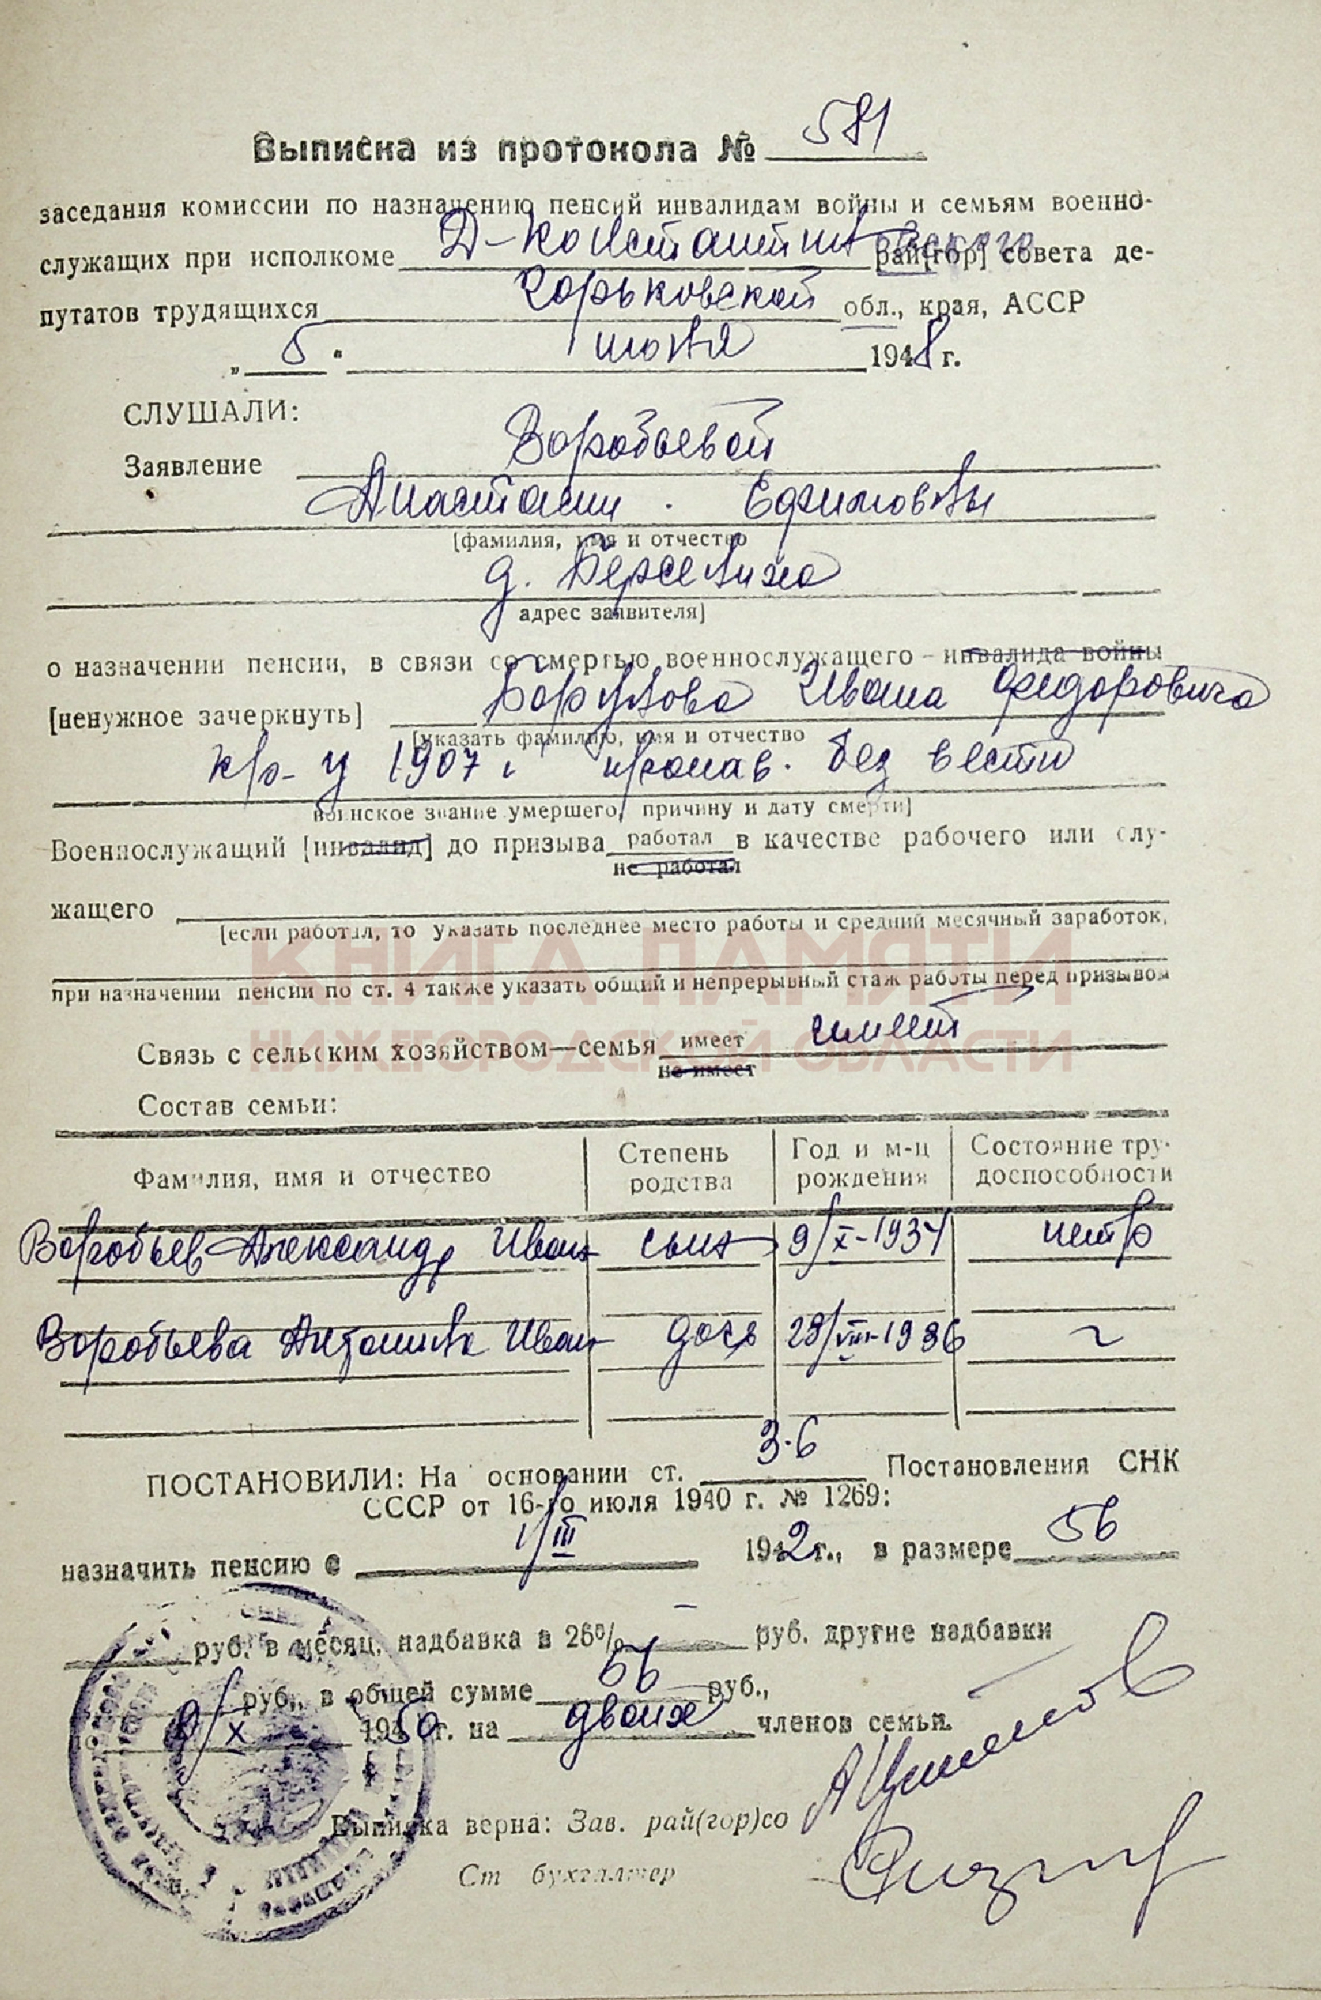 Выписка из протокола № 581
заседания комиссии по назначению пенсий инвалидам войны и семьям военно-
служащих при исполкоме Д-Константиновского рай[гор] совета де-
путатов трудящихся Горьковской обл., края, АССР
„ 5 “ июня 1948 г.
СЛУШАЛИ:
Заявление Воробьевой
Анастасии Ефимовны
[фамилия, имя и отчество
д. Берсениха
адрес заявителя]
о назначении пенсии, в связи со смертью военнослужащего – инвалида войны
[ненужное зачеркнуть] Ивана Федоровича
[указать фамилию, имя и отчество
кр-ц 1907 г пропав. без вести
воинское звание умершего, причину и дату смерти]
Военнослужащий [инвалид] до призыва работал в качестве рабочего или слу-
не работал
жащего
[если работал, то указать последнее место работы и средний месячный заработок,
КНИГА ПАМЯТИ
при назначении пенсии по ст. 4 также указать общий и непрерывный стаж работы перед призывом
НИЖЕГОРОДСКОЙ ОБЛАСТИ
Связь с сельским хозяйством—семья имеет имеет
не имеет
Состав семьи:
Фамилия, имя и отчество Степень родства Год и м-ц рождения Состояние трудоспособности
Воробьев Александр Иван сын 9/X-1934 нетр
Воробьева Антонина Иван дочь 28/VIII-1936
ПОСТАНОВИЛИ: На основании ст. 3-6 Постановления СНК
СССР от 16-го июля 1940 г. № 1269:
назначить пенсию с 1/III 1942 г., в размере 56
руб. в месяц, надбавка в 26% – руб. другие надбавки
руб., в общей сумме 56 руб.,
по 9/X 1950 г. на двоих членов семьи.
Выписка верна: Зав. рай(гор)со
Ст бухгалтер